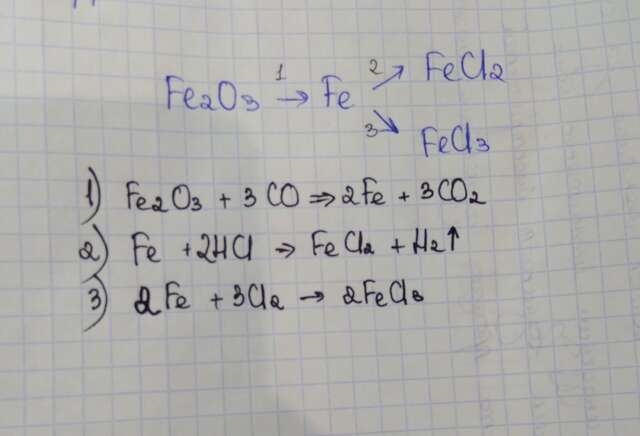 1 2 FeCl2
Fe2O3 → Fe ↗
3 ↘ FeCl3
1) Fe2O3 + 3CO ⇒ 2Fe + 3CO2
2) Fe + 2HCl → FeCl2 + H2↑
3) 2Fe + 3Cl2 → 2FeCl3